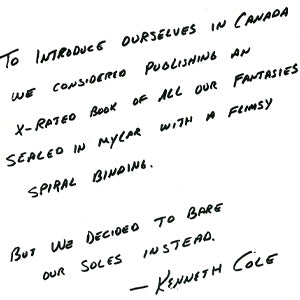 TO INTRODUCE OURSELVES IN CANADA
WE CONSIDERED PUBLISHING AN
X-RATED BOOK OF ALL OUR FANTASIES
SEALED IN MYLAR WITH A FLIMSY
SPIRAL BINDING.
BUT WE DECIDED TO BARE
OUR SOLES INSTEAD.
— KENNETH COLE